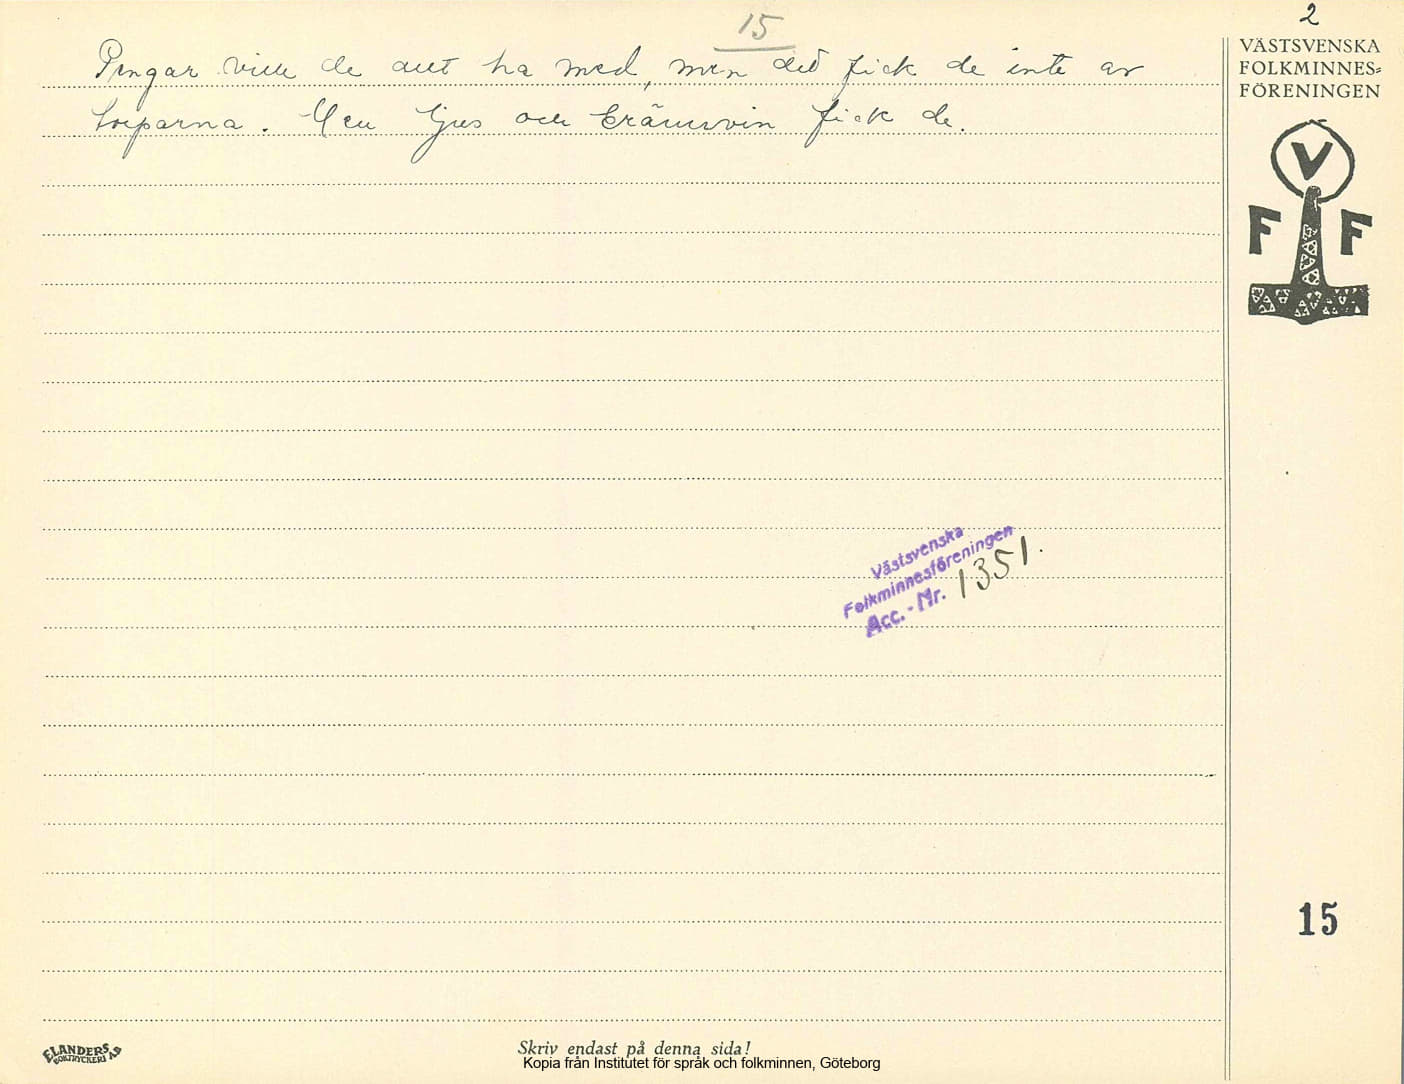 15
2
Pengar ville de allt ha med, men det fick de inte av
torparna. Men ljus och brännvin fick de.
VÄSTSVENSKA
FOLKMINNES-
FÖRENINGEN
V
F F
Västsvenska
Folkminnesföreningen
Acc.-Nr. 1351.
15
ELANDERS
BOKTRYCKERI AB
Skriv endast på denna sida!
Kopia från Institutet för språk och folkminnen, Göteborg